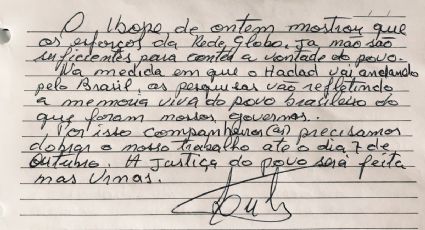 O Ibope de ontem mostrou que
os esforços da Rede Globo, já não são
suficientes para conter a vontade do povo.
Na medida em que o Hadad vai andando
pelo Brasil, as pesquisas vão refletindo
a memoria viva do povo brasileiro do
que foram nossos governos.
Por isso companheiros(as) precisamos
dobrar o nosso trabalho até o dia 7 de
outubro. A justiça do povo será feita
nas urnas.